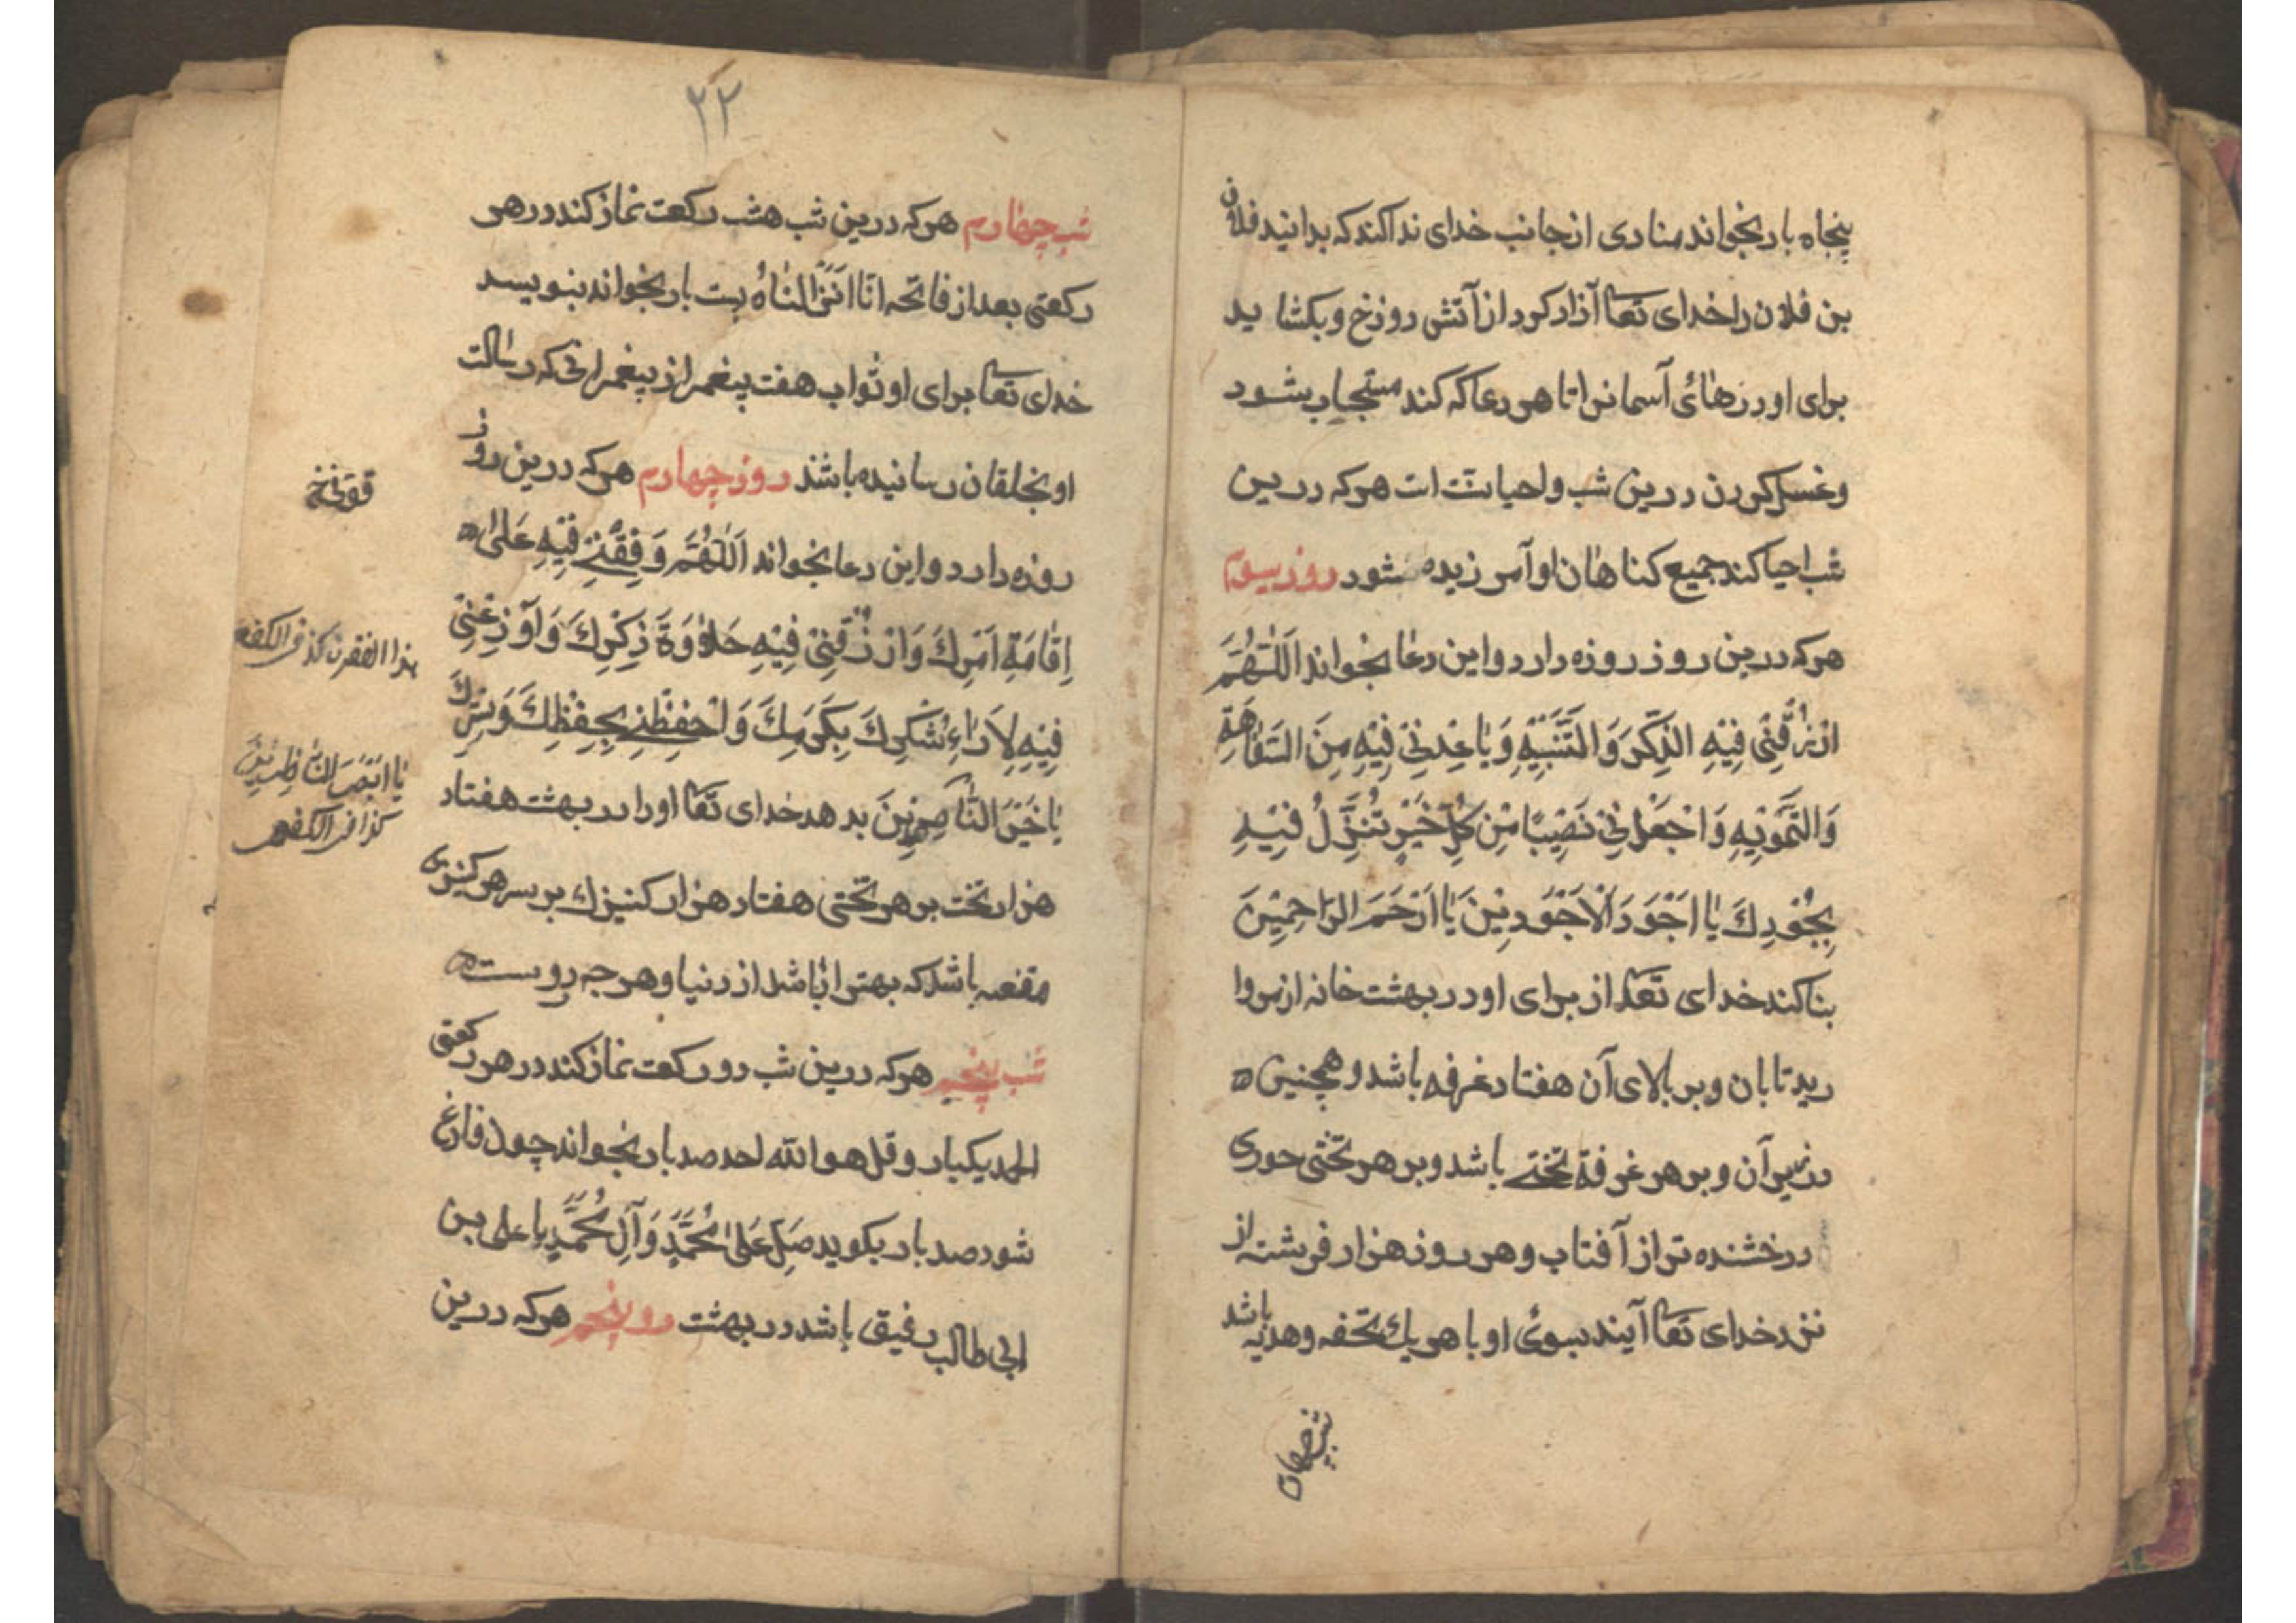 پنجاه بار بخواند منادی از جانب خدای ندا کند که بدانید فلان
بن فلان را خدای تعا آزاد کرد از آتش دوزخ و بکشا ید
برای او درهائ آسمانرا تا هر دعا که کند مستجاب شود
و غسل کردن درین شب و احیا سنّت است هر که درین
شب احیا کند جمیع کناهان او آمرزیده شود روز سیوم
هرکه درین روز روزه دارد و این دعا بخواند اَللّٰهُمَّ
ارْزُقْنِی فِیْهِ الذِّکْرَ وَ التَّنَبِیْهِ وَ بٰاعِدْنِی فِیْهِ مِنَ السَّفٰاهَةِ
وَ التَّمْوِیْهِ وَ اجْعَلْ لِیْ نَصِیْبًا مِنْ کُلِّ خَیْرٍ تُنَزِّلُ فِیْهِ
بِجُوْدِكَ یٰا اَجْوَدَ الْاَجْوَدِیْنَ یٰا اَرْحَمَ الرّٰاحِمِیْنَ
بنا کند خدای تعا از برای او در بهشت خانه از مروا
رید تابان و بر بالای آن هفتاد غرفه باشد و همچنین ه
در زیر آن و بر هر غرفهٔ تختی باشد و بر هر تختی حوری
درخشنده تر از آفتاب و هر روز هزار فرشته از
نزد خدای تعا آیند بسوئ او با هر یك تحفه و هدیه باشد
شب چهارم
٢٢
شب چهارم هرکه درین شب هشب رکعت نماز کند در هر
رکعتی بعد از فاتحه انّا انزلناه بیست بار بخواند بنویسد
خدای تعا برای او ثواب هفت پیغمبر از پیغمبرانی که رسالت
او بخلقان رسانیده باشند روز چهارم هرکه درین روز
روزه دارد و این دعا بخواند اَللّٰهُمَّ وَفِّقْنِی فِیْهِ عَلیٰ ه
اِقٰامَةِ اَمْرِكَ وَ ارْزُقْنِیْ فِیْهِ حَلٰاوَةَ ذِکْرِكَ وَ اَوْزِعْنِیْ
فِیْهِ لِاَدٰاءِ شُکْرِكَ بِکَرَمِكَ وَ احْفِظْنِی بِحِفْظِكَ وَ سِتْرِكَ
یٰا خَیْرَ النّٰاصِرِیْنَ بدهد خدای تعا او را در بهشت هفتاد
هزار تخت بر هر تختی هفتاد هزار کنیزك بر سر هر کنیزی
مقنعه باشد که بهتر از باشد از دنیا و هر چه دروست ه
شب پنجم هرکه درین شب دو رکعت نماز کند در هر رکعتی
الحمد یکبار و قل هو الله احد صد بار بخواند چون فارغ
شود صد بار بکوید صَلِّ عَلیٰ مُحَمَّدٍ وَ آلِ مُحَمَّدٍ با علی بن
ابی طالب رفیق باشد در بهشت رو پنجم هرکه درین
قوّنی خ
یٰا اَبْصَرَ النّٰاظِرِیْنَ
کذا فی الکفعمی